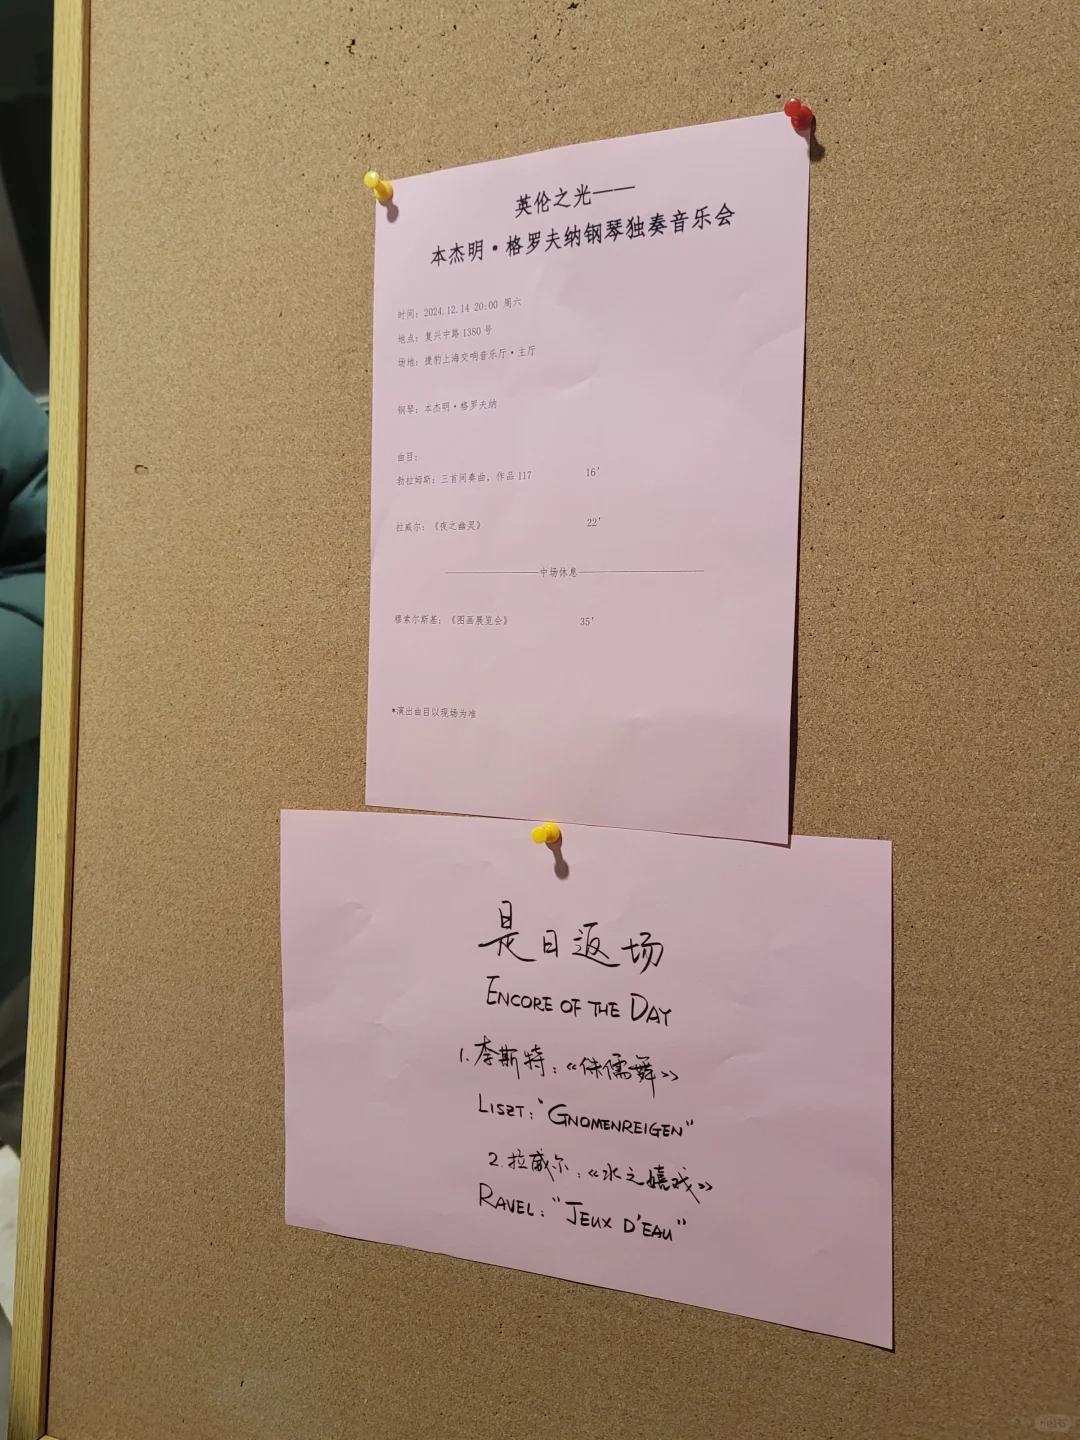 英伦之光——
本杰明·格罗夫纳钢琴独奏音乐会
时间：2024.12.14 20:00 周六
地点：复兴中路 1380 号
场地：捷豹上海交响音乐厅·主厅
钢琴：本杰明·格罗夫纳
曲目：
勃拉姆斯：三首间奏曲，作品 117 16'
拉威尔：《夜之幽灵》 22'
中场休息
穆索尔斯基：《图画展览会》 35'
*演出曲目以现场为准
是日返场
ENCORE OF THE DAY
1. 李斯特：《侏儒舞》
LISZT: "GNOMENREIGEN"
2. 拉威尔：《水之嬉戏》
RAVEL: "JEUX D'EAU"